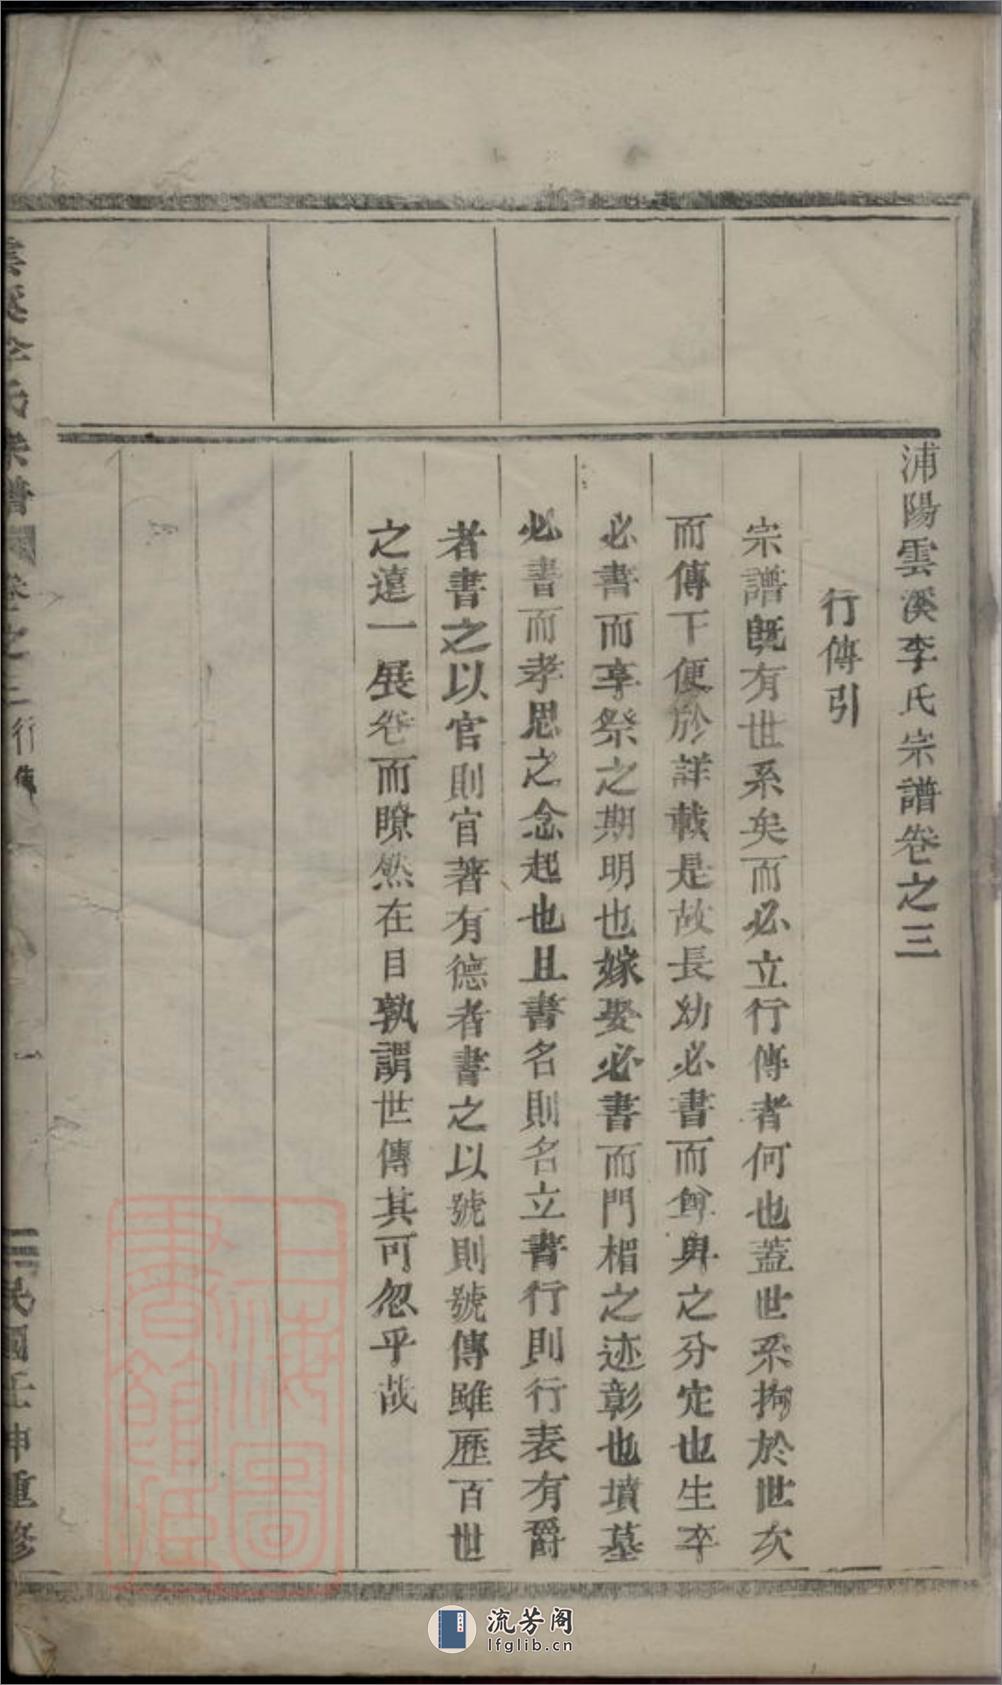 浦陽雲溪李氏宗譜卷之三
行傳引
宗譜既有世系矣而必立行傳者何也蓋世系拘於世次
而傳下便於詳載是故長幼必書而尊卑之分定也生卒
必書而享祭之期明也嫁娶必書而門楣之迹彰也墳墓
必書而孝思之念起也且書名則名立書行則行表有爵
者書之以官則官著有德者書之以號則號傳雖歷百世
之遠一展卷而瞭然在目孰謂世傳其可忽乎哉
雲溪李氏宗譜 卷之三 行傳 一 民國壬申重修
上海圖書館藏
流芳阁
lfglib.cn